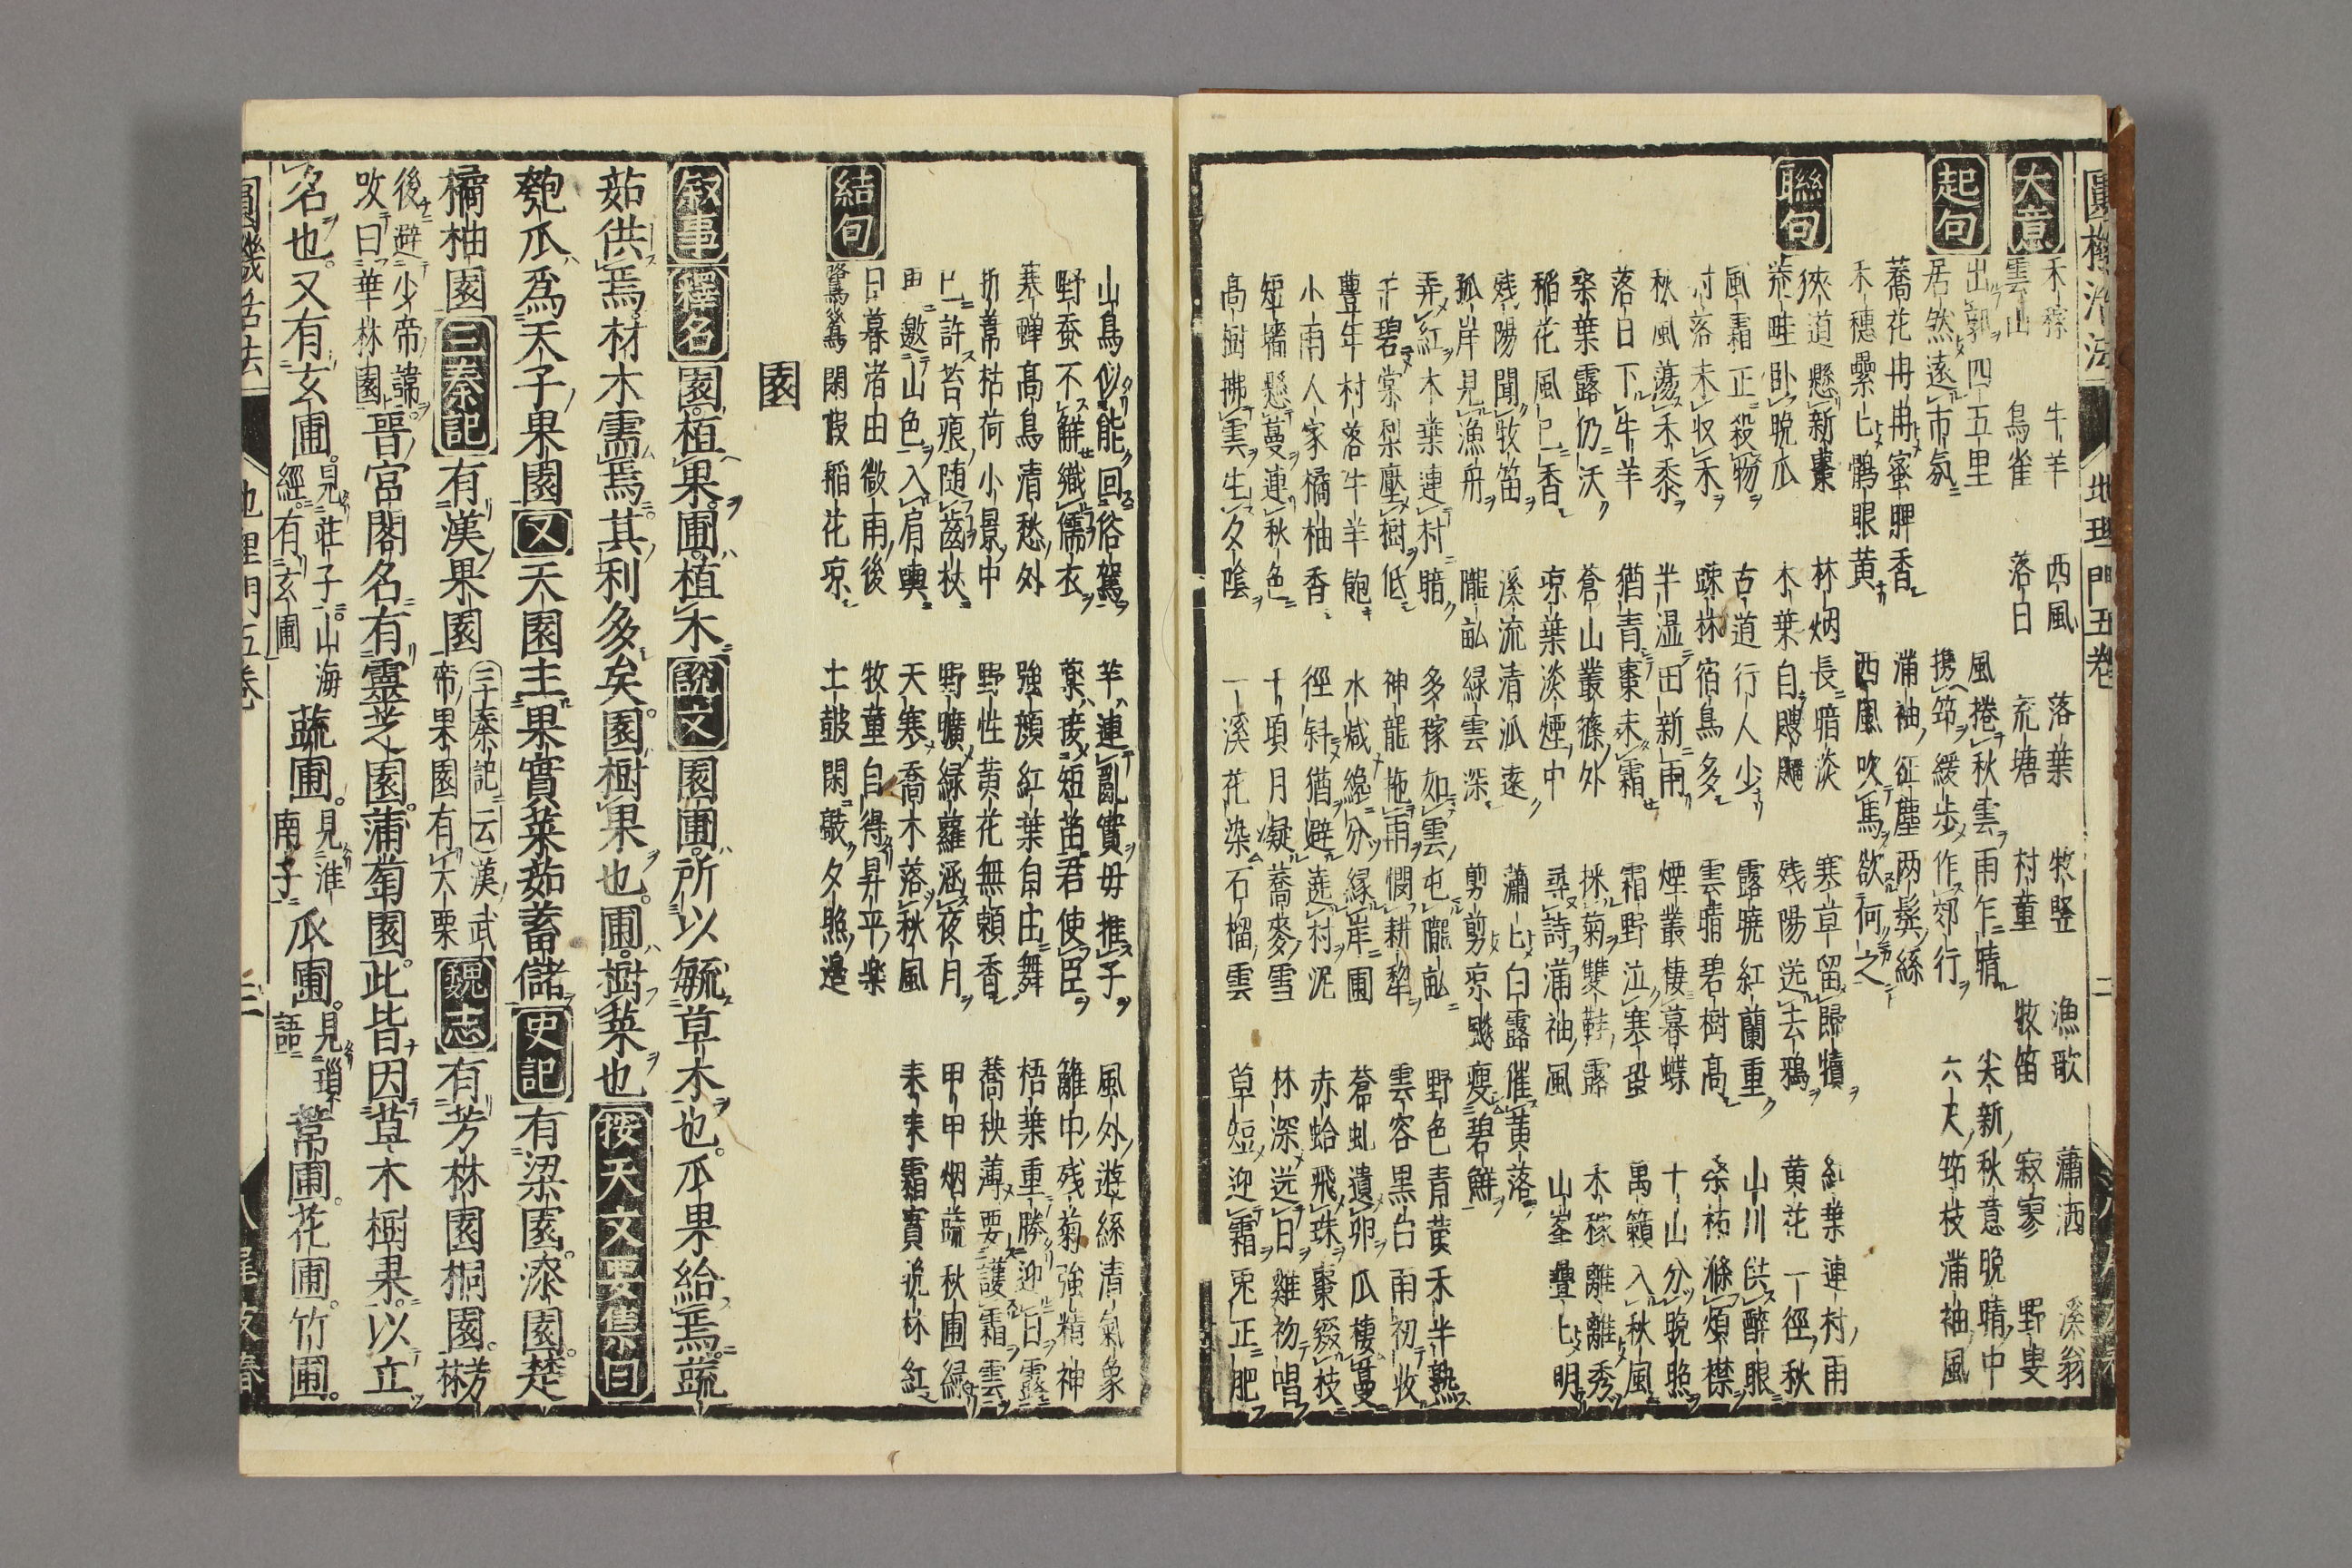 圓機活法 地理門五卷
大意
禾稼 牛羊 西風 落葉 牧竪 漁歌 蕭洒 溪翁
雲山 鳥雀 落日 荒塘 村童 牧笛 寂寥 野叟
起句
出郭四五里 風捲秋雲雨乍晴 尖新秋意晩晴中
居然遠市氛 携筇緩步作郊行 六尺筇枝滿袖風
蕎花冉冉蜜脾香 滿袖征塵兩鬂絲
禾穗纍匕鸎眼黃 西風吹馬欲何之
聯句
狹道懸新棗 林烟長暗淡 寒草留歸犢 紅葉連村雨
荒畦卧晩瓜 木葉自飕飀 残陽送去鴉 黃花一徑秋
風霜正殺物 古道行人少 露曉紅蘭重 山川供醉眼
村落未収禾 踈林宿鳥多 雲晴碧樹高 滌煩襟
秋風蕩禾黍 半湿田新雨 煙叢棲暮蝶 十山分晩照
落日下牛羊 猶青棗未霜 霜野泣寒蛩 萬籟入秋風
桑葉露仍沃 蒼山叢篠外 採菊雙鞋露 禾稼離離秀
稲花風已香 凉葉淡煙中 尋詩滿袖風 山峯疊匕明
残陽聞牧笛 溪流清泒遠 蕭匕白露催黃落
孤岸見漁舟 隴畆綠雲深 剪剪凉颷瘦碧鮮
弄紅木葉連村暗 多稼如雲屯隴畆 野色青黃禾半熟
千碧棠梨壓樹低 神龍拖雨憫耕犂 雲容黑白雨初收
豊年村落牛羊飽 水減纔分緣岸圃 蒼虬遺卵瓜棲蔓
小雨人家橘柚香 徑斜猶避遶村泥 赤蛤飛珠棗綴枝
短墻懸蔓連秋色 十頃月凝蕎麥雪 林深送日雞初唱
高樹拂雲生夕陰 一溪花染石榴雲 草短迎霜兎正肥
山鳥似能回俗駕 羊連亂實毋推子 風外遊絲清氣象
野蚕不解織儒衣 藥接短苗君使臣 籬中残菊強精神
寒蟬高鳥清愁外 強顔紅葉自庄舞 梧葉重勝迎日露
折葦枯荷小景中 野性黃花無賴香 蕎秧薄要護霜雲
已許苔痕随齒秋 野曠綠蘿涵夜月 甲甲烟蔬秋圃綠
更邀山色入肩輿 天寒喬木落秋風 霜實晩林紅
結句
日暮渚由微雨後 牧童自得昇平楽
鷺鷥閑假稲花凉 土皷閑敲夕照邉
園
叙事 釋名 園植果圃植木 說文 園圃所以毓草木也瓜果給焉蔬
茹供焉材木需焉其利多矣園樹果也圃樹菜也 按天文要集小曰
匏瓜爲天子果園 又 天園主果實菜茹蓄儲 史記 有梁園漆園楚
橘柚園 三秦記 有漢果園 三秦記云漢武帝果園有大栗 魏志 有芳林園桐園芳林
後避少帝諱改曰華林園 晉宮閣名有靈芝園蒲萄園此皆因草木樹果以立
名也又有玄圃 見莊子山海經有玄圃 蔬圃 見淮南子 瓜圃 見瑣語 葦圃花圃竹圃
圓機活法 地理門五卷